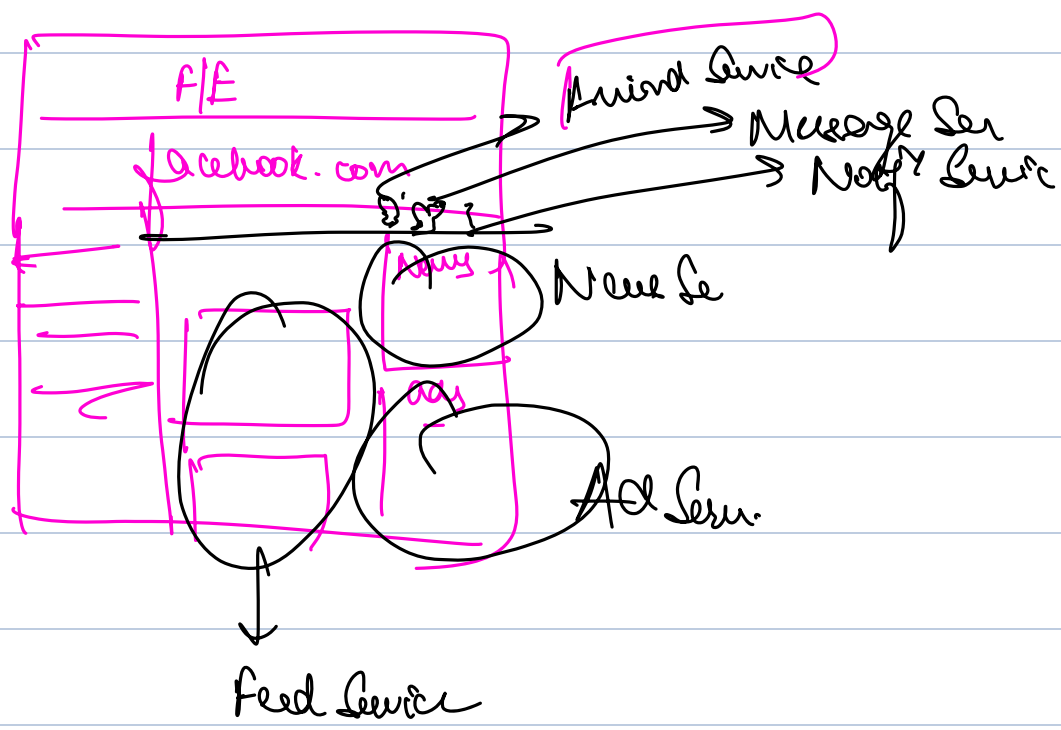 F/E
facebook.com
Service
Message Ser
Service
News
News Se
ads
Ad Serv.
Feed Service